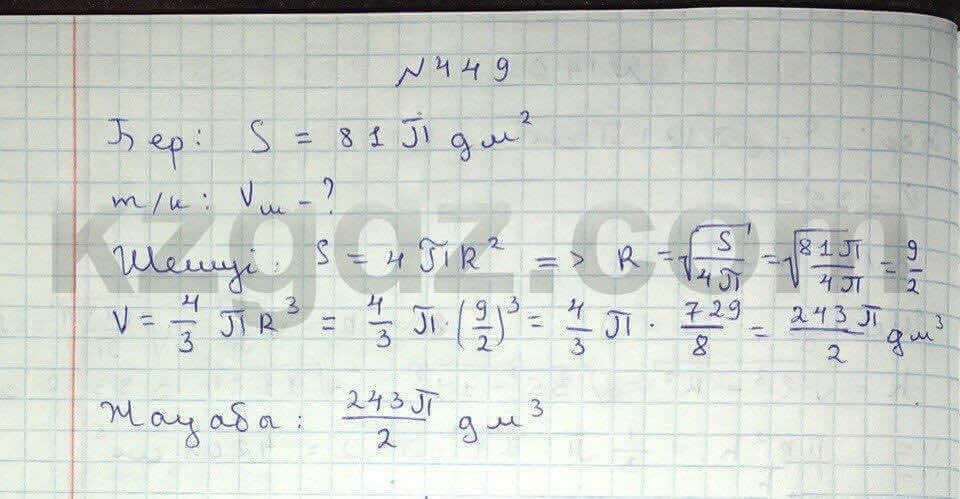 №449
Бер: S = 81 П дм²
т/к: Vш - ?
Шешуі: S = 4ПR² => R = √(S/4П) = √(81П/4П) = 9/2
V = 4/3 ПR³ = 4/3 П · (9/2)³ = 4/3 П · 729/8 = 243П/2 дм³
Жауабы: 243П/2 дм³
kzgdz.com